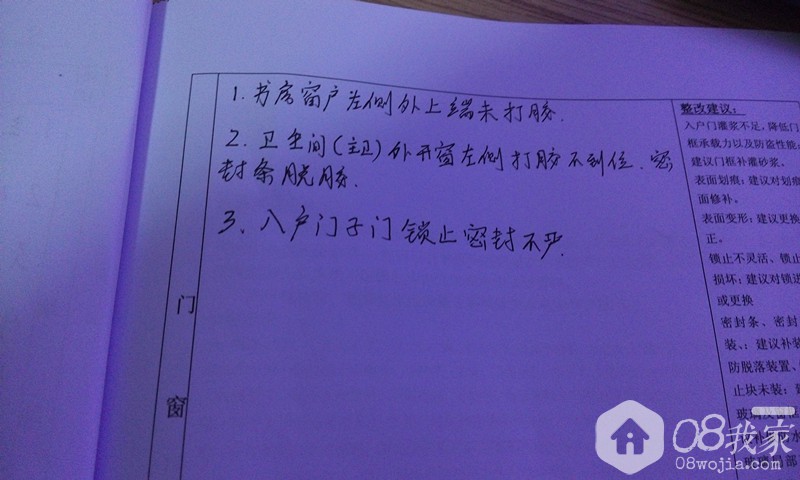 1. 书房窗户左侧外上端未打胶.
2. 卫生间(主卫)外开窗左侧打胶不到位、密
封条脱胶.
3、入户门子门锁止密封不严.
门
窗
整改建议:
入户门灌浆不足,降低门
框承载力以及防盗性能:
建议门框补灌砂浆。
表面划痕:建议对划痕
面修补。
表面变形:建议更换
正。
锁止不灵活、锁止
损坏:建议对锁进
或更换
密封条、密封
装、:建议补装
防脱落装置、
止块未装:建
08我家
08wojia.com